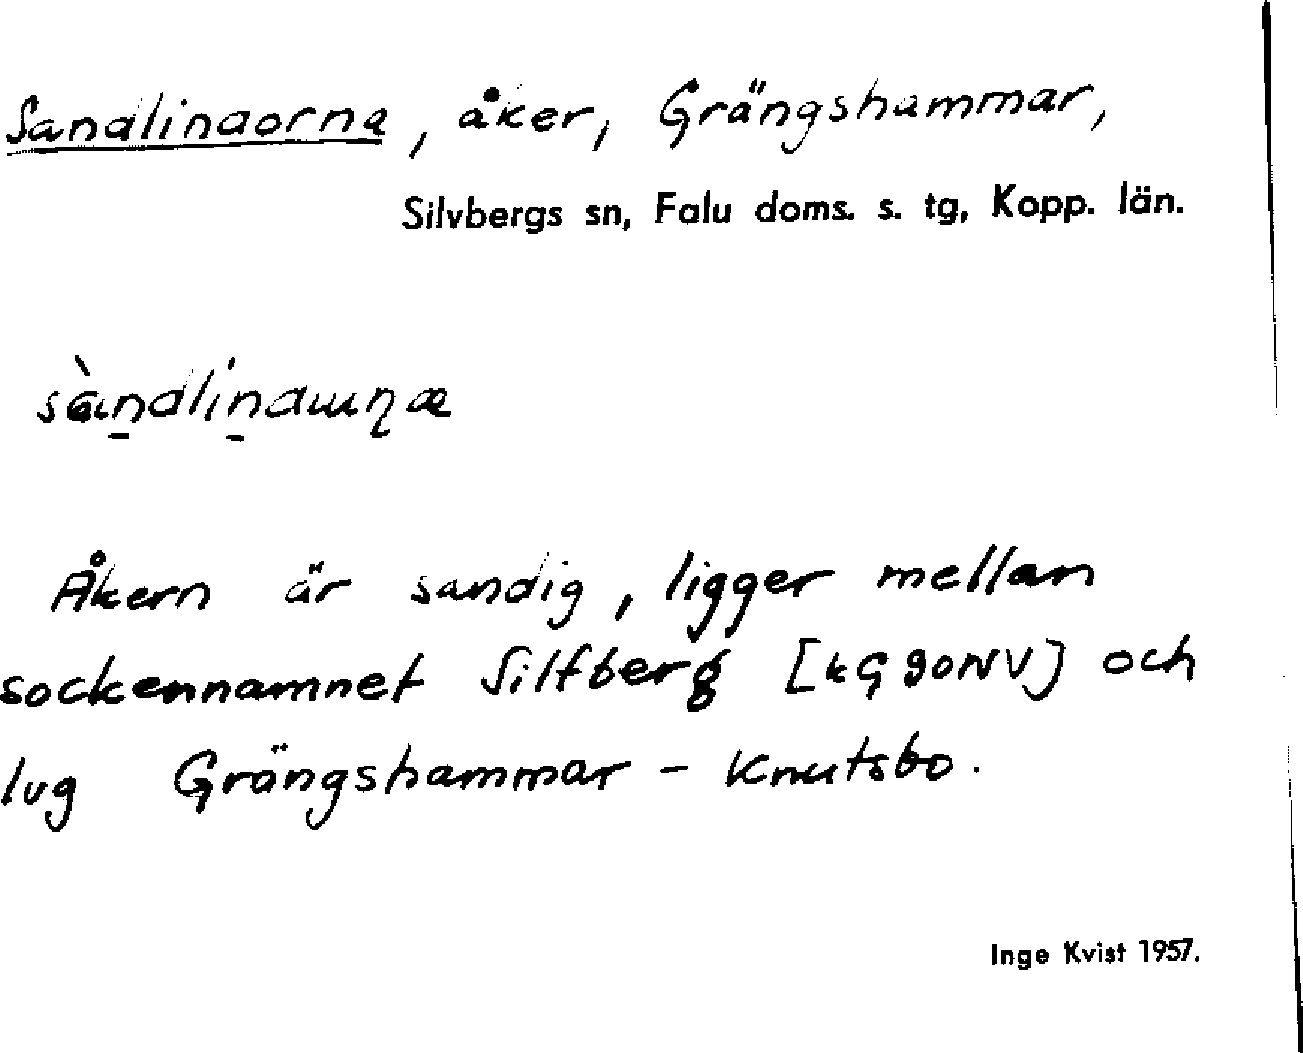 Sandlindorna, åker, Grängshammar,
Silvbergs sn, Falu doms. s. tg, Kopp. län.
Åkern är sandig, ligger mellan
sockennamnet Silfberg [kG 90NV] och
lvg Grängshammar - Knutsbo.
Inge Kvist 1957.